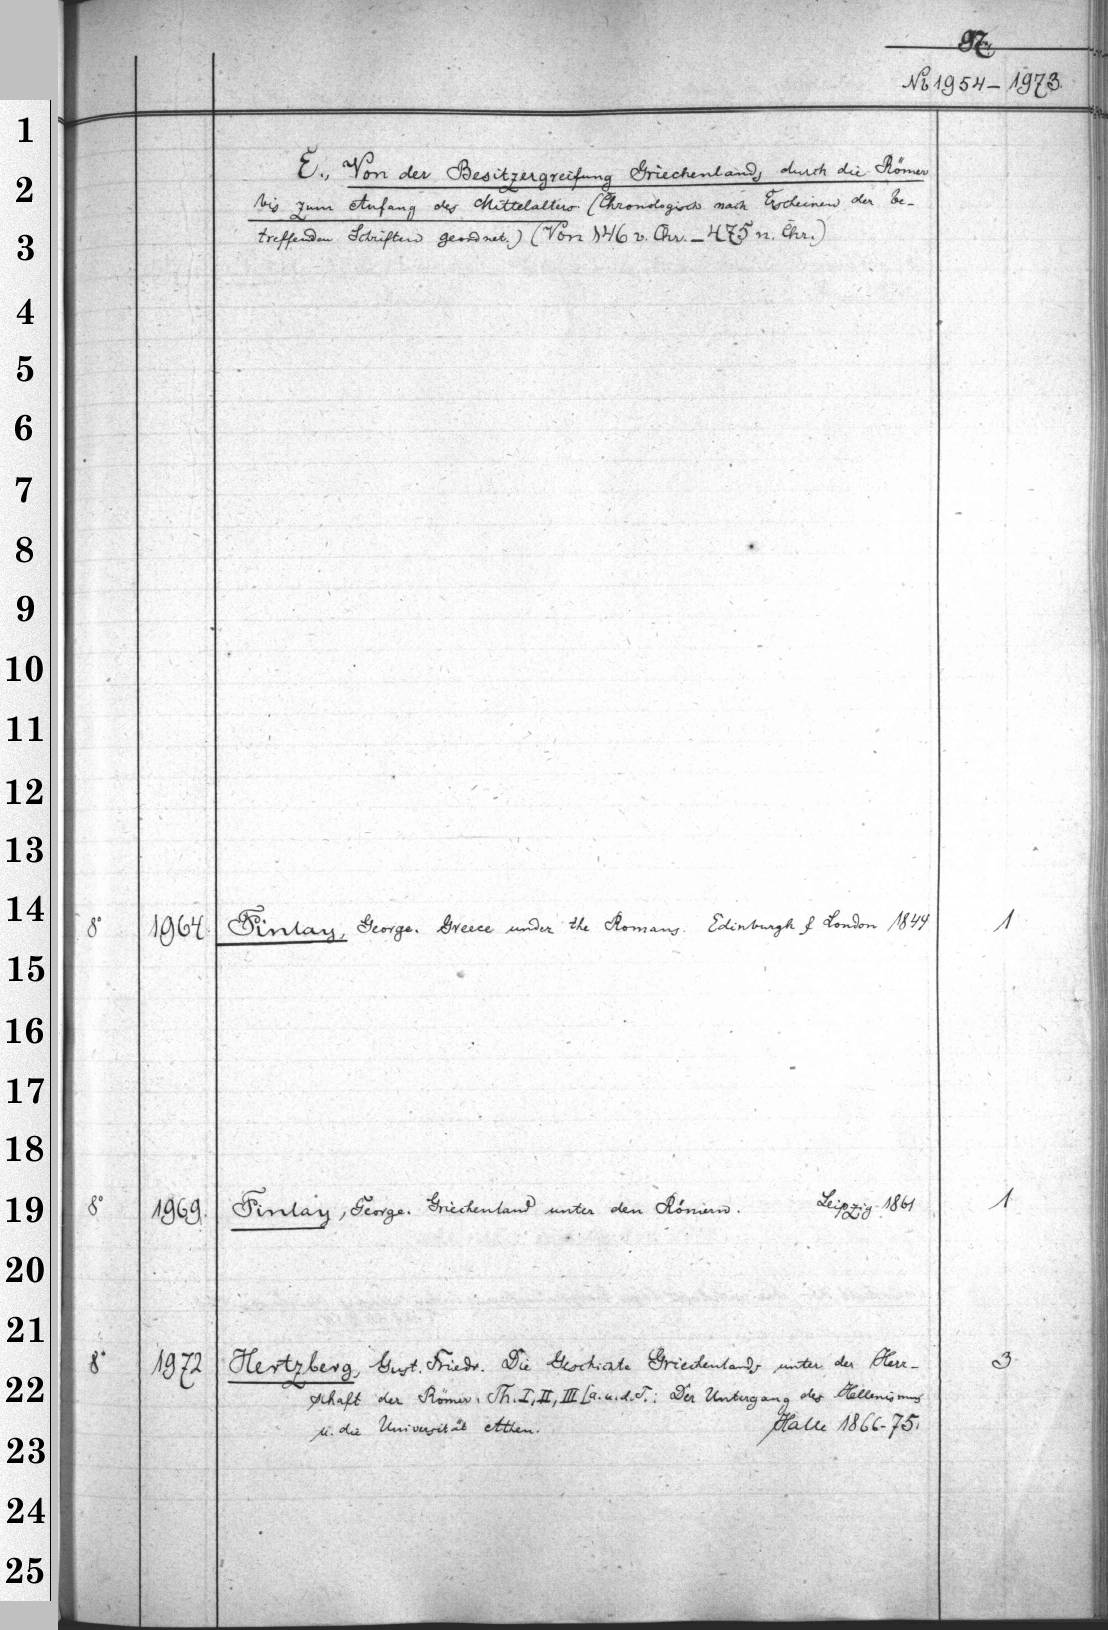 97.
No 1954 – 1973.
1
E., Von der Besitzergreifung Griechenlands durch die Römer
2
bis zum Anfang des Mittelalters. (Chronologisch nach Erscheinen der be-
3
treffenden Schriften geordnet.) (Von 146 v. Chr. – 475 n. Chr.)
4
5
6
7
8
9
10
11
12
13
14
8° 1964. Finlay, George. Greece under the Romans. Edinburgh & London 1844 1
15
16
17
18
19
8° 1969. Finlay, George. Griechenland unter den Römern. Leipzig 1861 1
20
21
8° 1972 Hertzberg, Gust. Friedr. Die Geschichte Griechenlands unter der Herr- 3
22
schaft der Römer. Th. I, II, III [a. u. d. T.: Der Untergang des Hellenismus
u. die Universität Athen. Halle 1866-75.
23
24
25